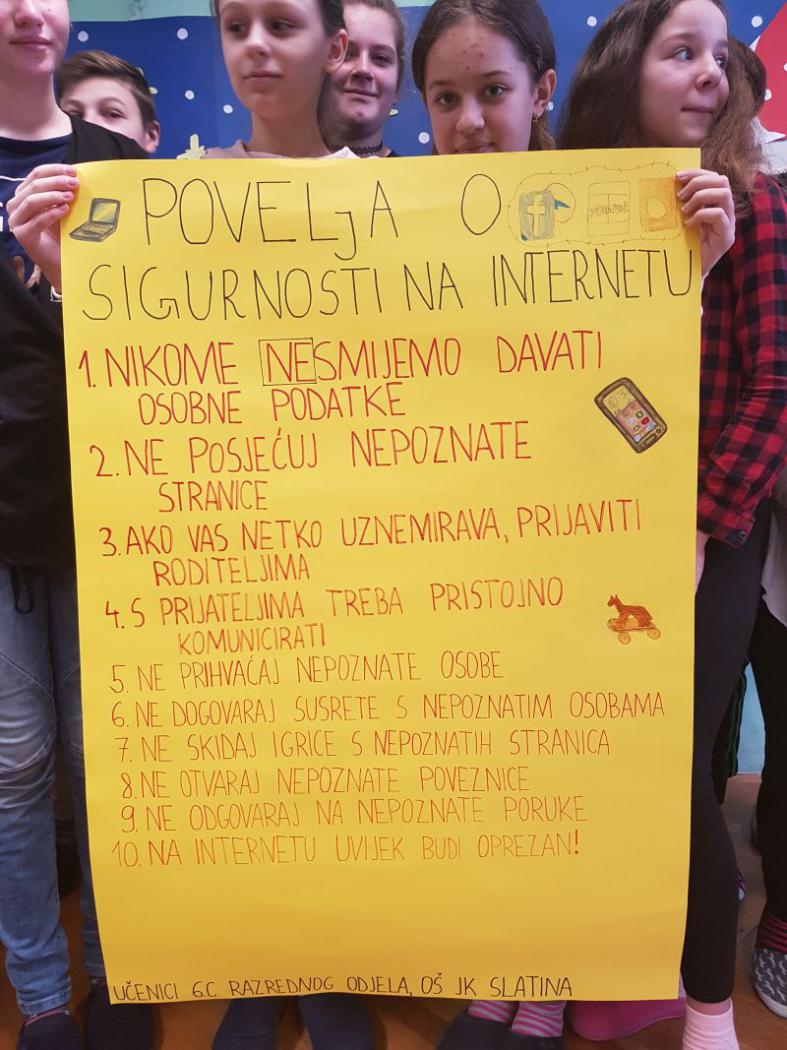 POVELjA O
SIGURNOSTI NA INTERNETU
1. NIKOME NE SMIJEMO DAVATI
OSOBNE PODATKE
2. NE POSJEĆUJ NEPOZNATE
STRANICE
3. AKO VAS NETKO UZNEMIRAVA, PRIJAVITI
RODITELJIMA
4. S PRIJATELJIMA TREBA PRISTOJNO
KOMUNICIRATI
5. NE PRIHVAĆAJ NEPOZNATE OSOBE
6. NE DOGOVARAJ SUSRETE S NEPOZNATIM OSOBAMA
7. NE SKIDAJ IGRICE S NEPOZNATIH STRANICA
8. NE OTVARAJ NEPOZNATE POVEZNICE
9. NE ODGOVARAJ NA NEPOZNATE PORUKE
10. NA INTERNETU UVIJEK BUDI OPREZAN!
UČENICI 6.C. RAZREDNOG ODJELA, OŠ JK SLATINA